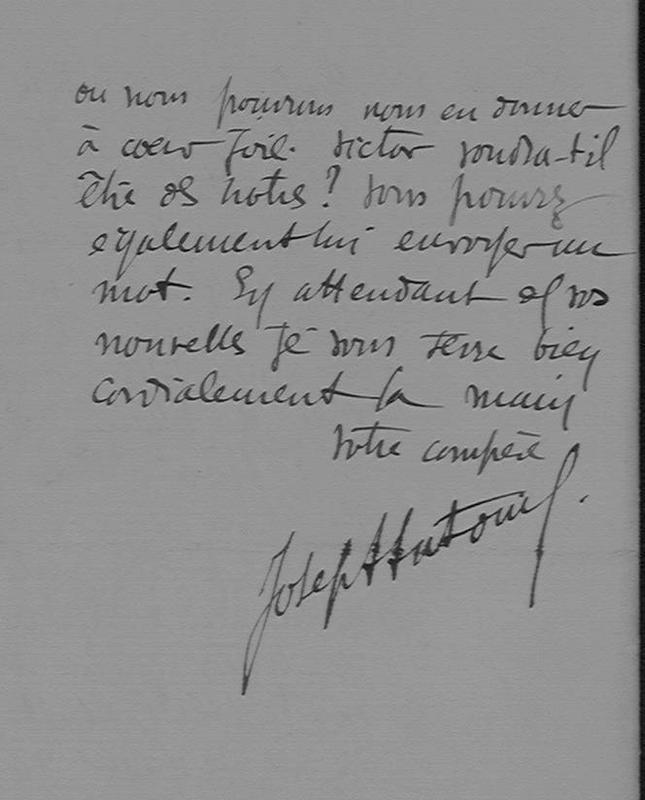 où nous pourrons nous en donner
à coeur joie. Victor voudra-t-il
être des notres ? Vous pouvez
egalement lui envoyer un
mot. En attendant de vos
nouvelles je vous serre bien
cordialement la main
Votre compère
Joseph